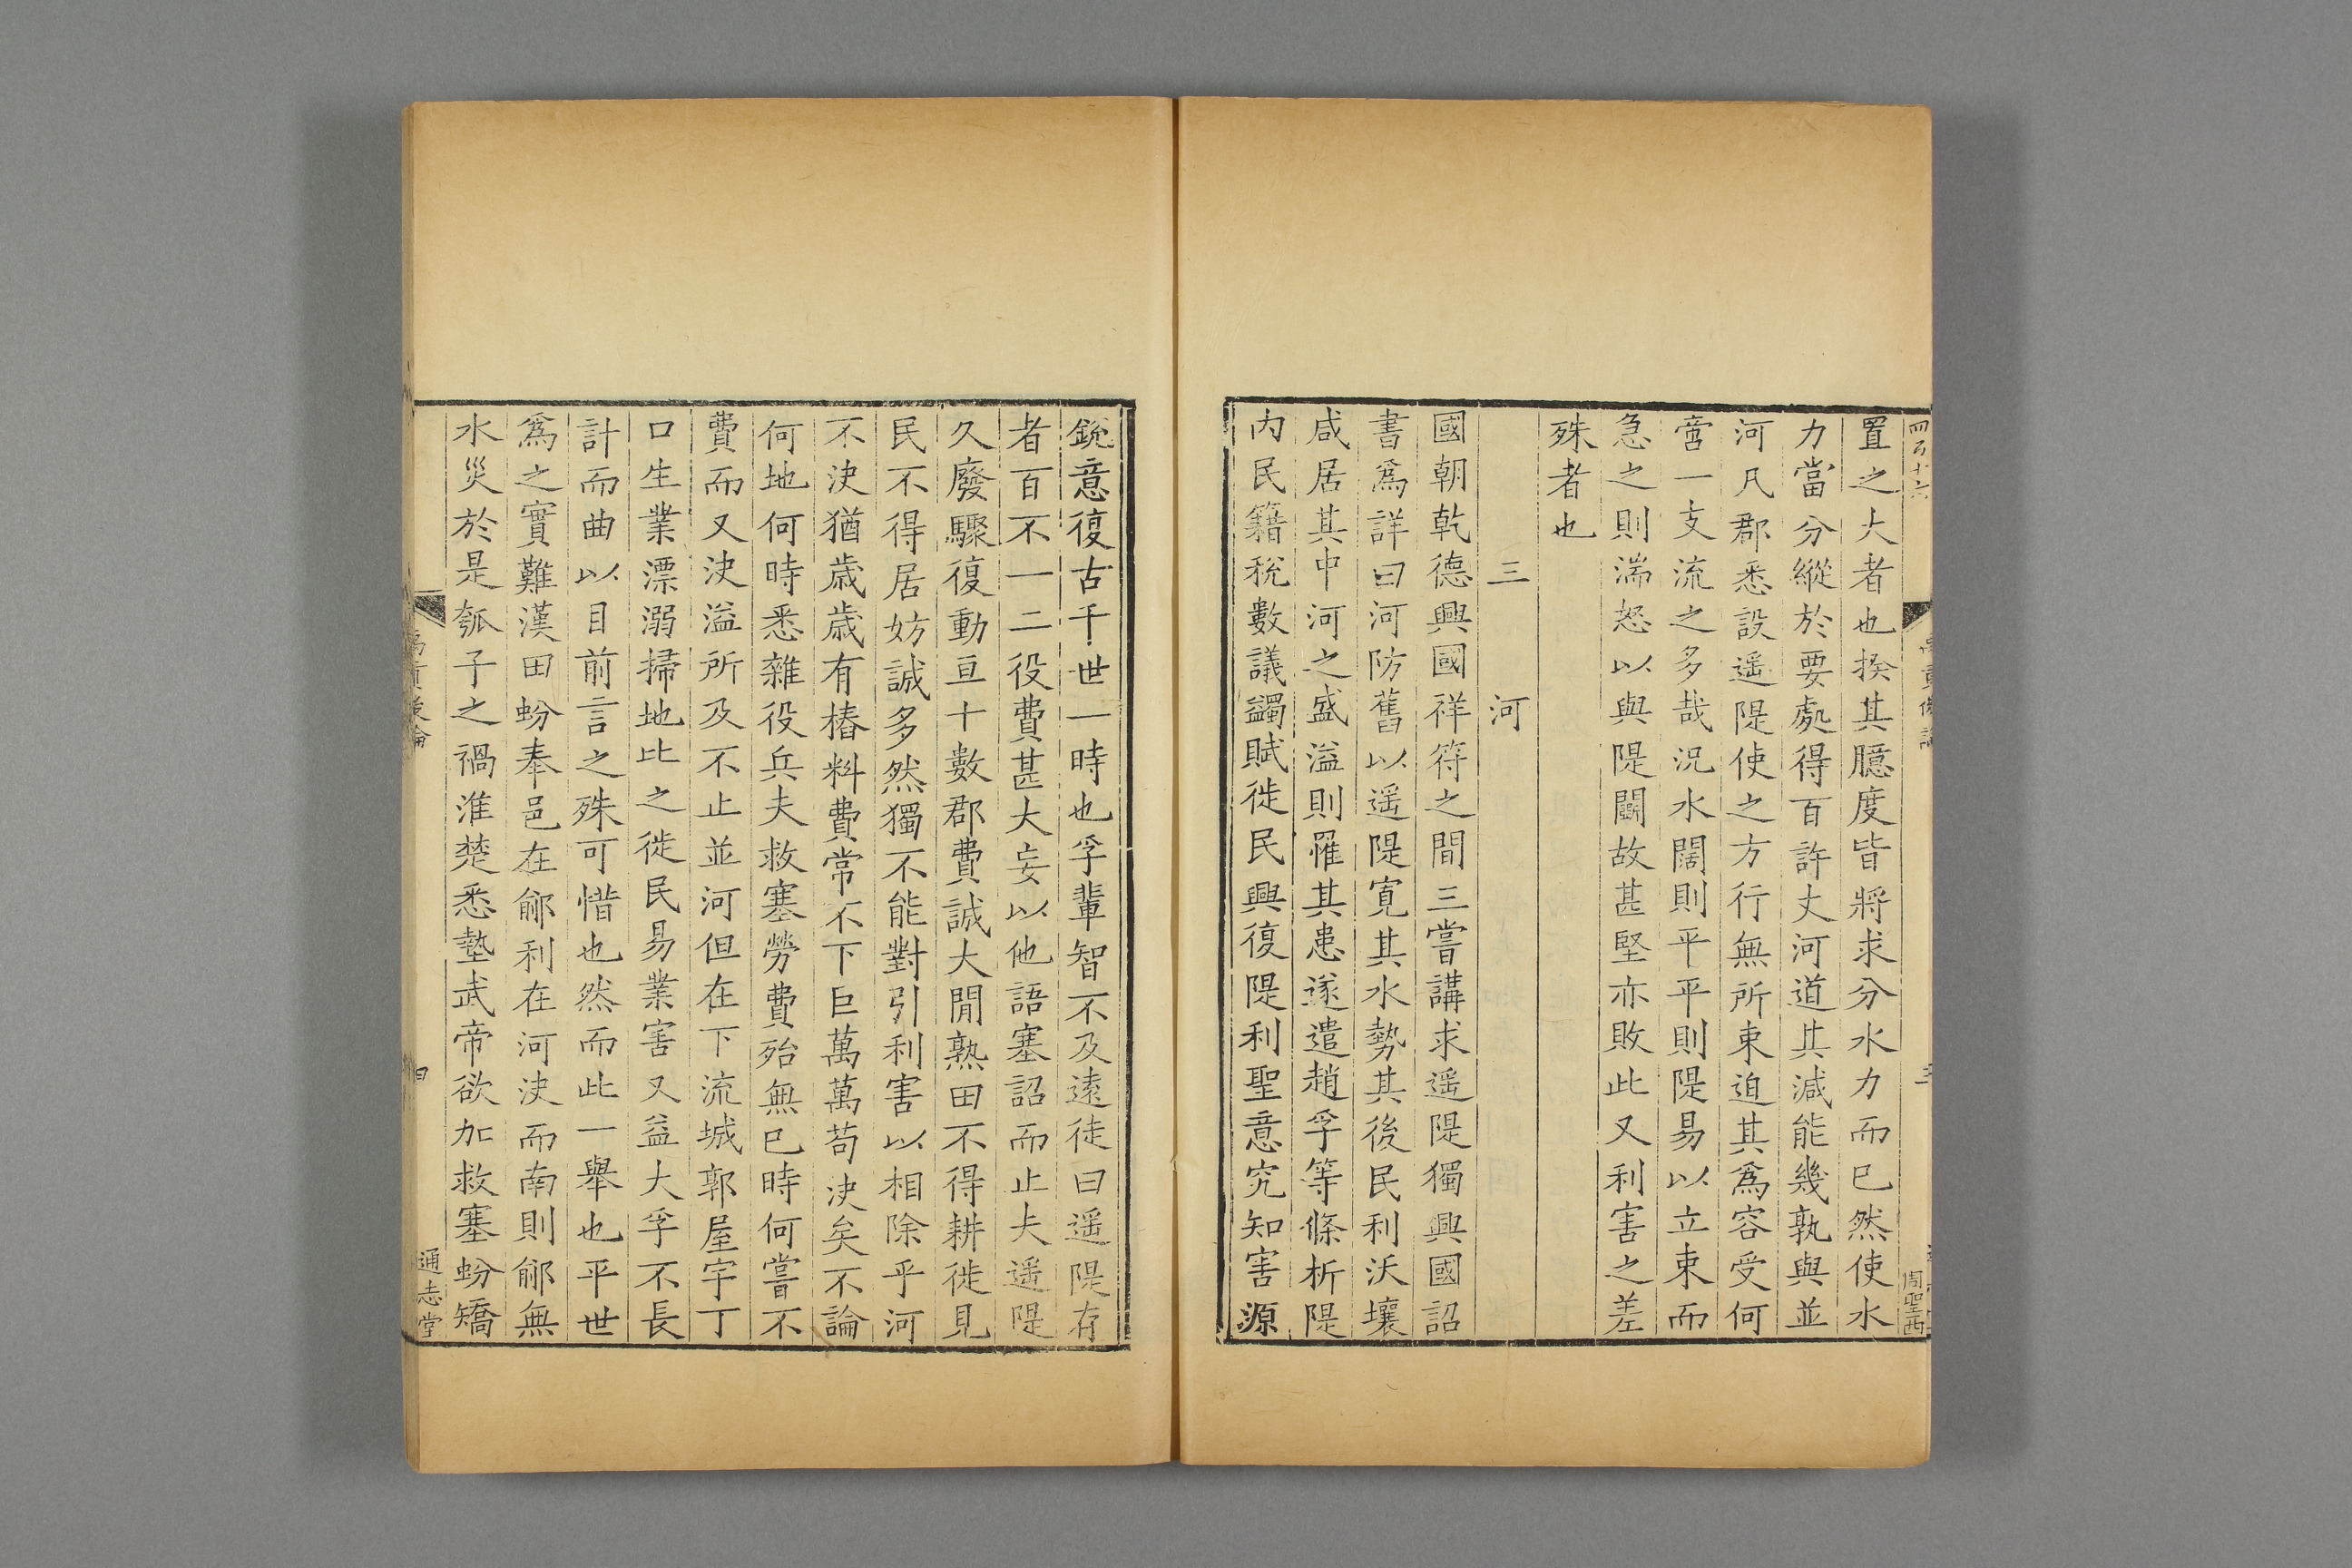 置之大者也揆其臆度皆將求分水力而已然使水
力當分縱於要處得百許丈河道其減能幾孰與並
河凡郡悉設遥隄使之方行無所束迫其爲容受何
啻一支流之多哉況水闊則平平則隄易以立束而
急之則湍怒以與隄鬬故甚堅亦敗此又利害之差
殊者也
三河
國朝乾德興國祥符之間三嘗講求遥隄獨興國詔
書爲詳曰河防舊以遥隄寛其水勢其後民利沃壤
咸居其中河之盛溢則罹其患遂遣趙孚等條析隄
内民籍稅數議蠲賦徙民興復隄利聖意究知害源
銳意復古千世一時也孚輩智不及遠徒曰遥隄存
者百不一二役費甚大妄以他語塞詔而止夫遥隄
久廢驟復動亘十數郡費誠大閒熟田不得耕徙見
民不得居妨誠多然獨不能對引利害以相除乎河
不決猶歲歲有樁料費常不下巨萬萬苟決矣不論
何地何時悉雜役兵夫救塞勞費殆無已時何嘗不
費而又決溢所及不止並河但在下流城郭屋宇丁
口生業漂溺掃地比之徙民易業害又益大孚不長
計而曲以目前言之殊可惜也然而此一舉也平世
爲之實難漢田蚡奉邑在鄃利在河決而南則鄃無
水災於是瓠子之禍淮楚悉墊武帝欲加救塞蚡矯
通志堂